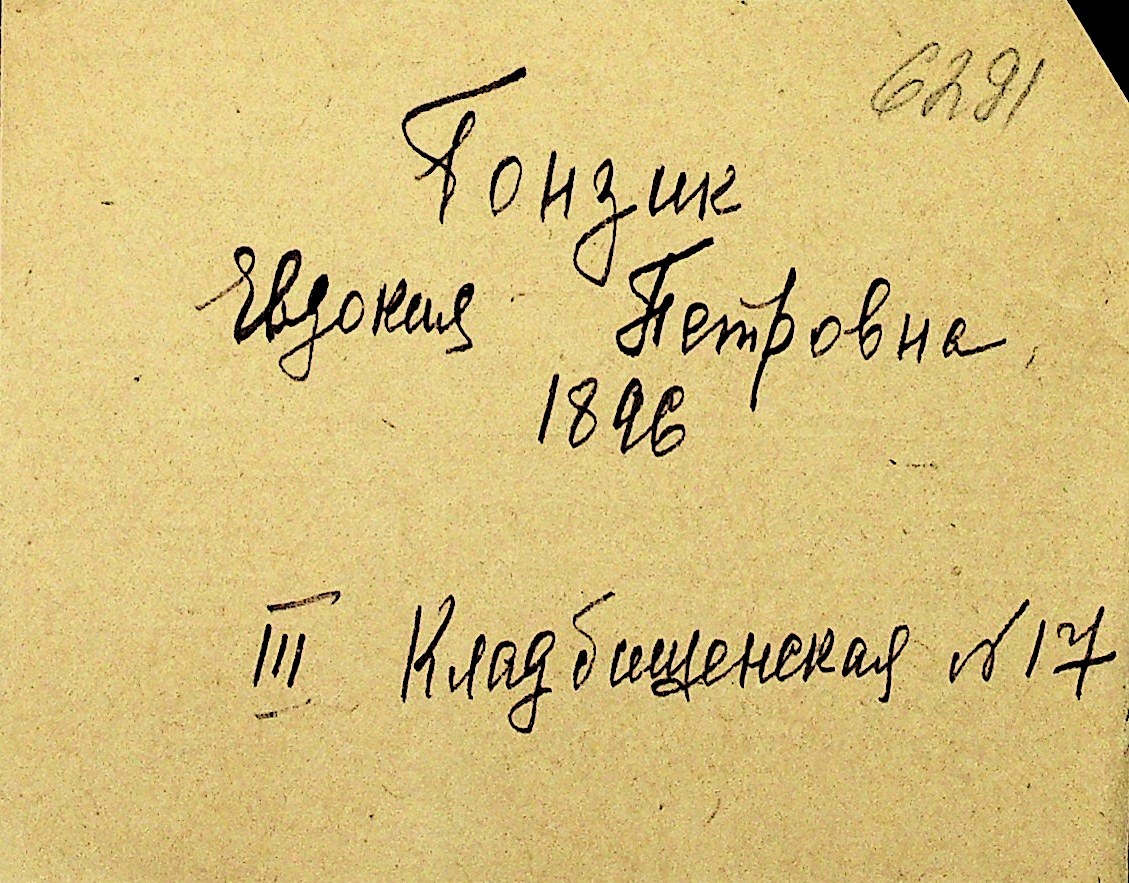 6291
Гонзик
Евдокия Петровна
1896
III Кладбищенская № 17